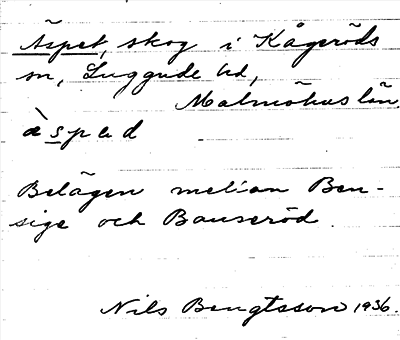 Äspet, skog i Kågeröds
sn, Luggude hd,
Malmöhus län.
àspəd
Belägen mellan Ben-
sige och Bauseröd.
Nils Bengtsson 1936.